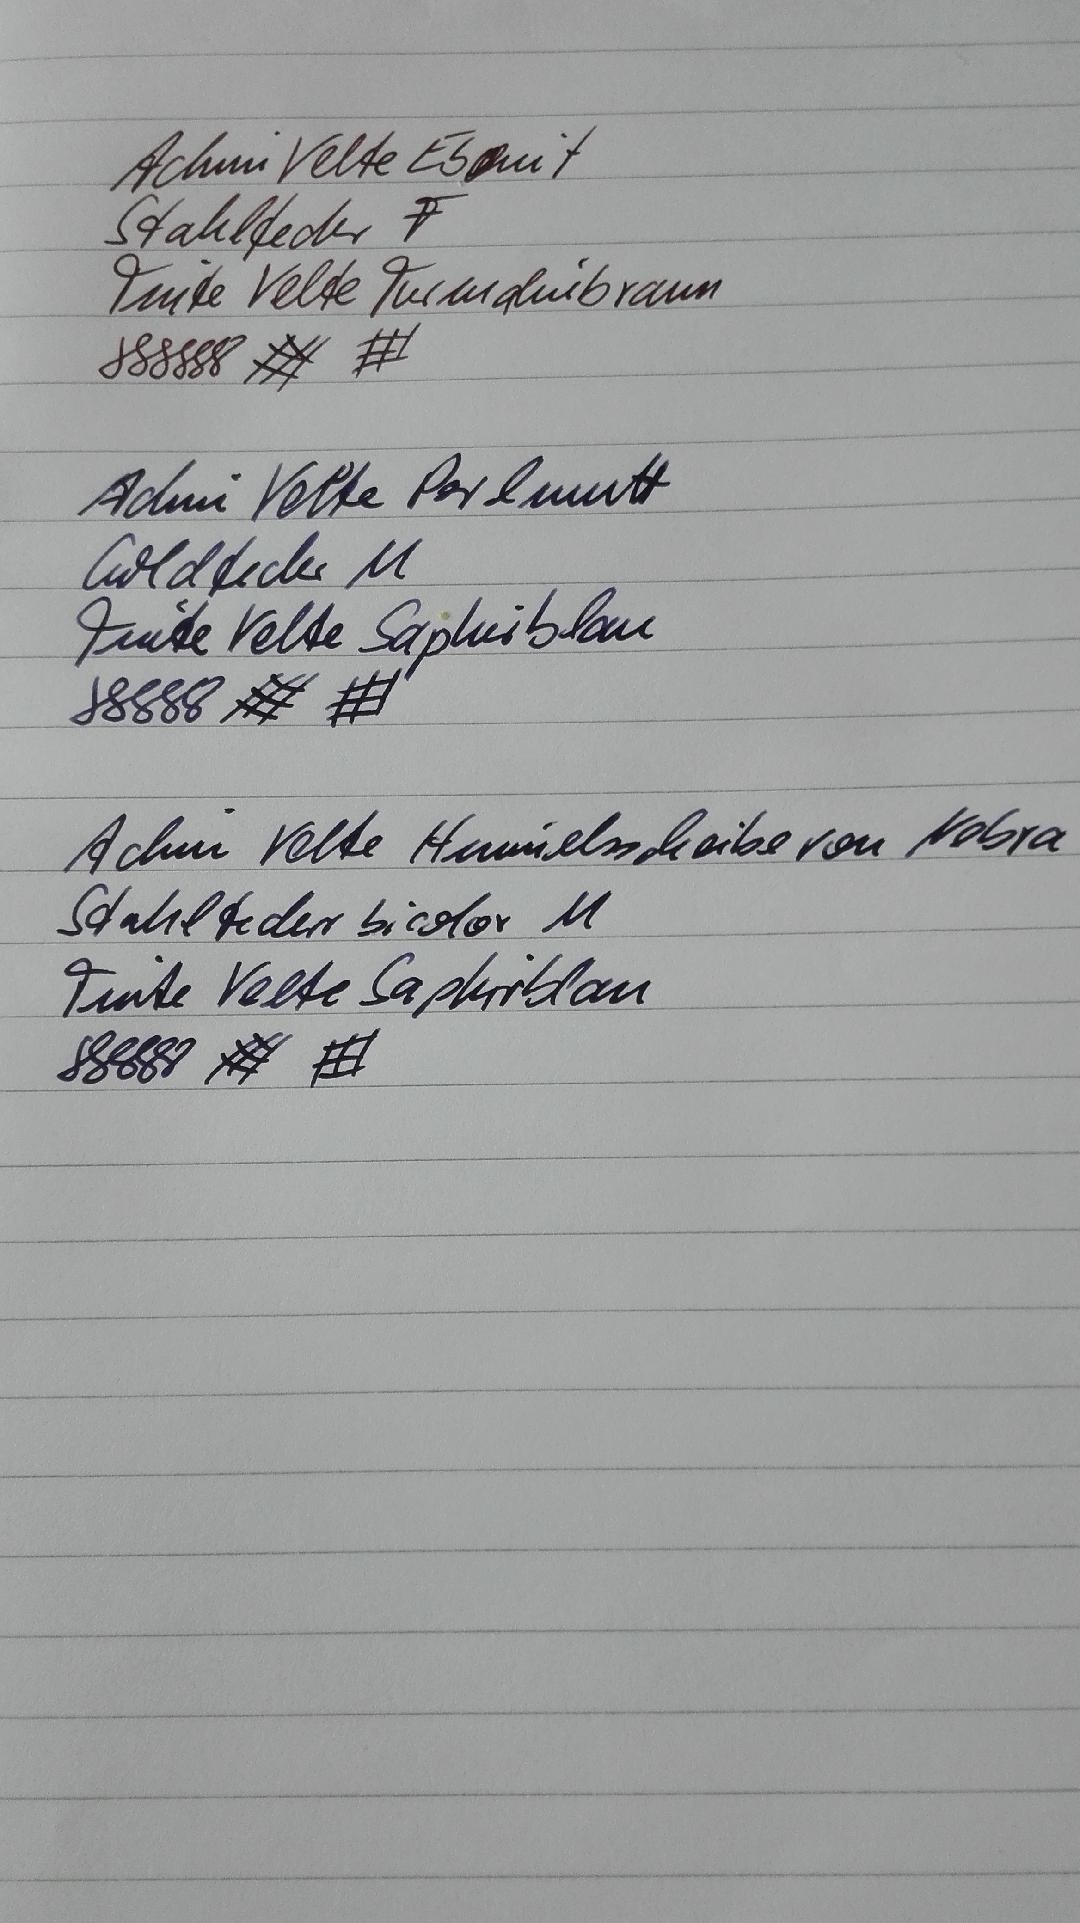 Achim Velte Ebonit
Stahlfeder F
Tinte Velte Turmalinbraun
188888 # #
Achim Velte Perlmutt
Goldfeder M
Tinte Velte Saphirblau
18888 # #
Achim Velte Himmelsscheibe von Nebra
Stahlfeder bicolor M
Tinte Velte Saphirblau
188888 # #